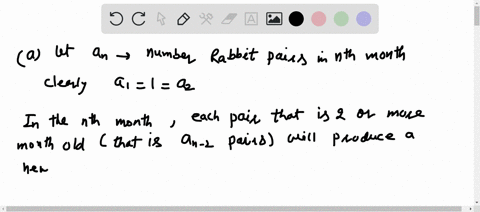 (a) let an → number Rabbit pairs in nth month
clearly a1 = 1 = a2
In the nth month, each pair that is 2 or more
month old (that is an-2 pairs) will produce a
hew